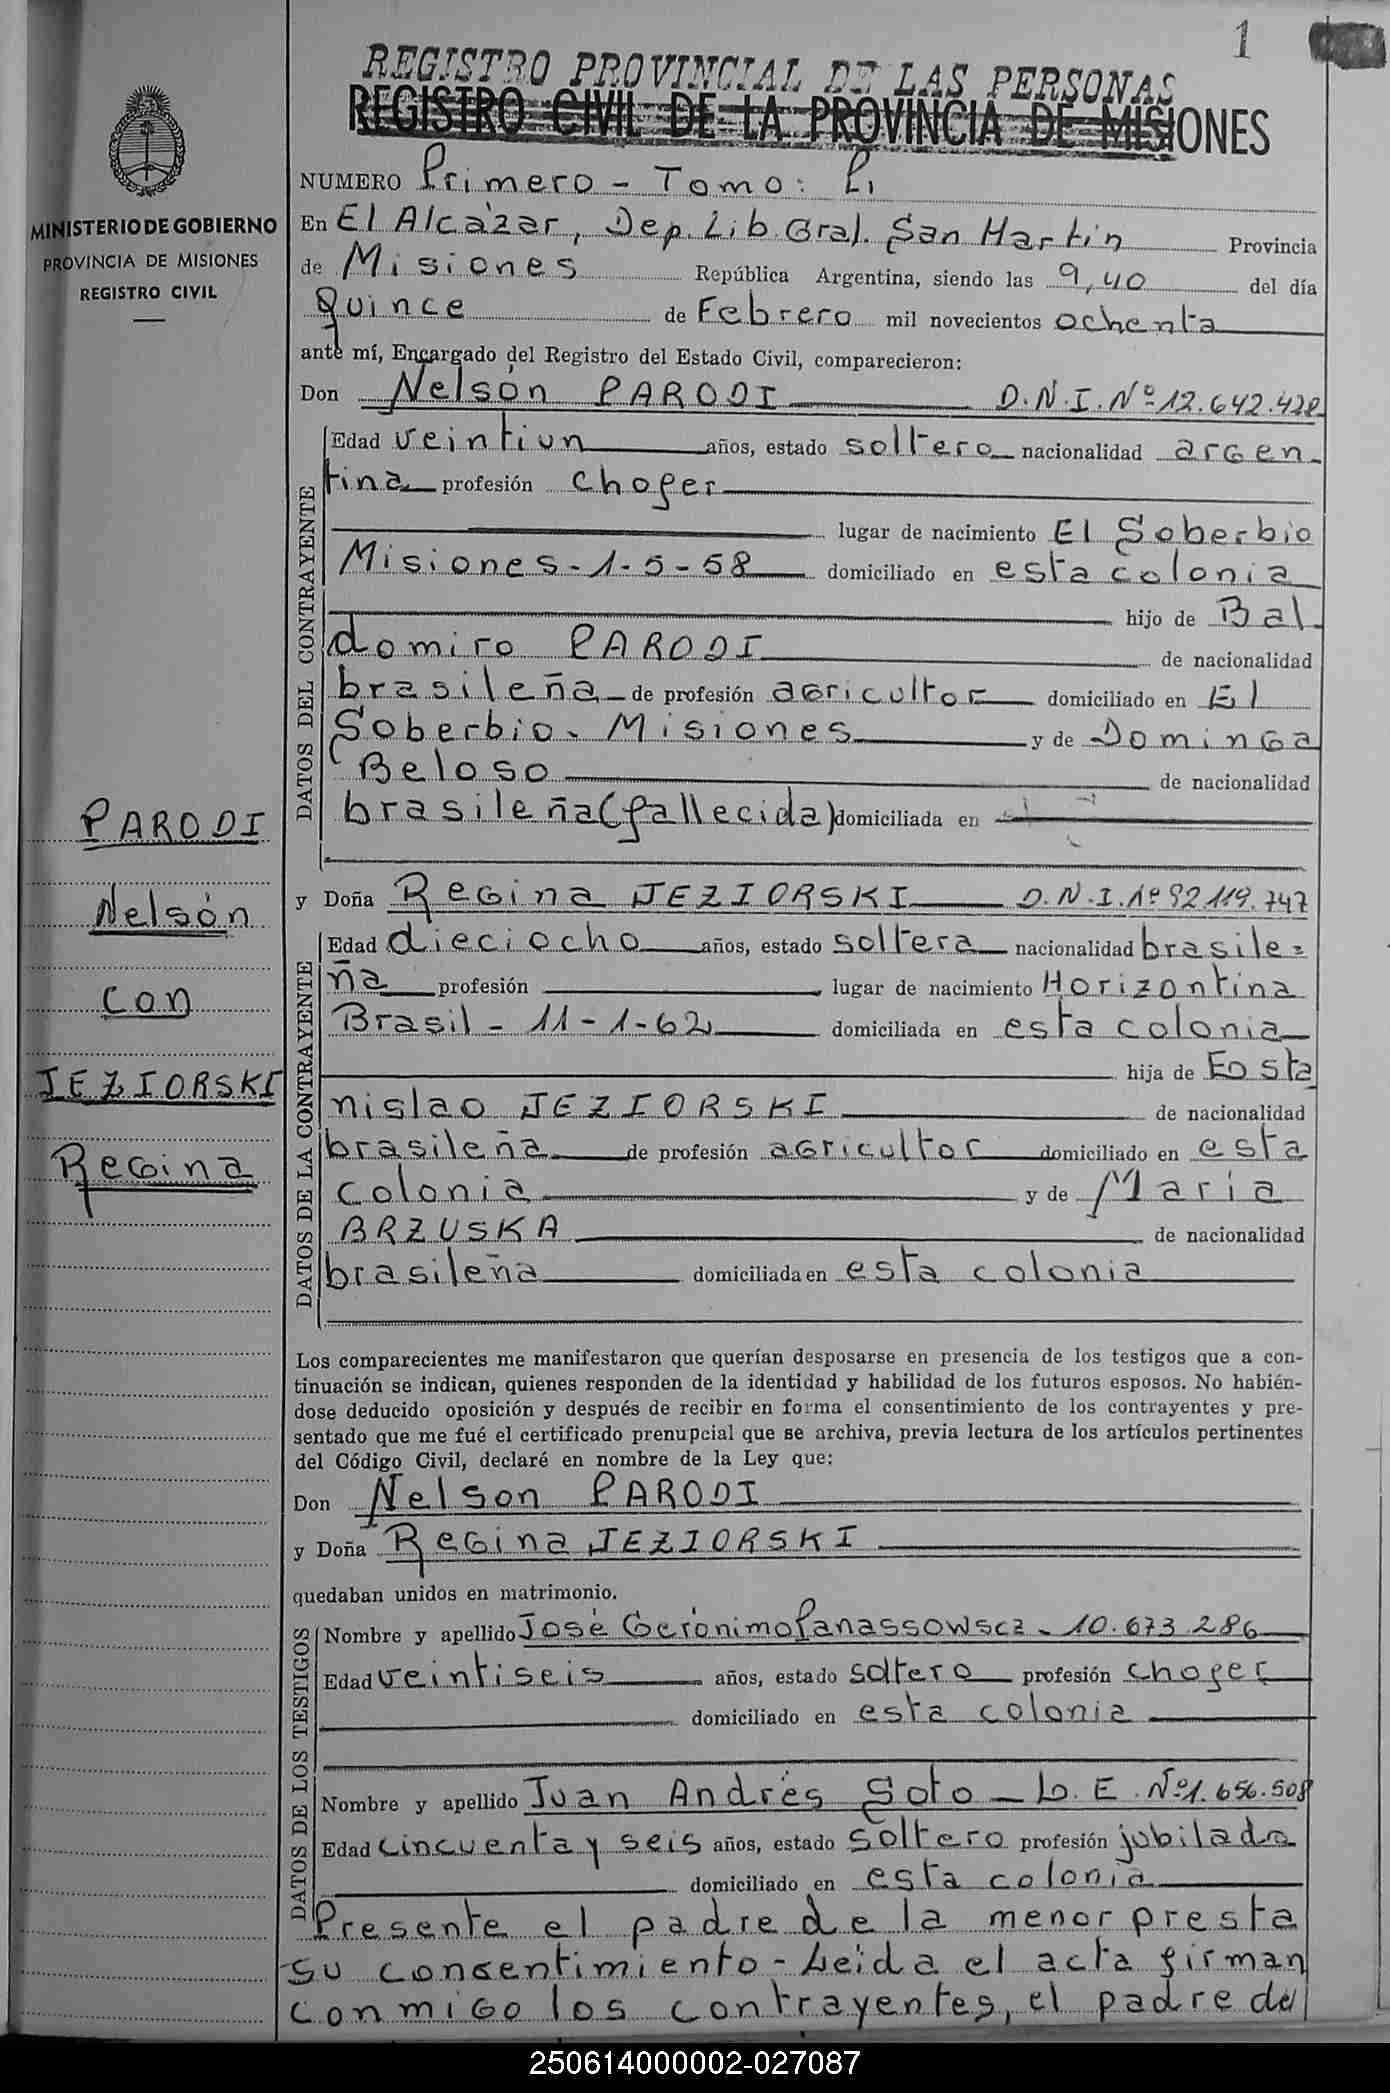 1
REGISTRO PROVINCIAL DE LAS PERSONAS
REGISTRO CIVIL DE LA PROVINCIA DE MISIONES
MINISTERIO DE GOBIERNO
PROVINCIA DE MISIONES
REGISTRO CIVIL
NUMERO Primero - Tomo:
En El Alcázar, Dep. Lib. Gral. San Martin Provincia
de Misiones República Argentina, siendo las 9,40 del día
Quince de Febrero mil novecientos ochenta
ante mí, Encargado del Registro del Estado Civil, comparecieron:
Don Nelsón PARODI D.N.I. Nº 12.642.428
DATOS DEL CONTRAYENTE
Edad veintiun años, estado soltero nacionalidad argen-
tina profesión chofer
lugar de nacimiento El Soberbio
Misiones - 1-5-58 domiciliado en esta colonia
hijo de Bal
domiro PARODI de nacionalidad
brasileña de profesión agricultor domiciliado en El
Soberbio - Misiones y de Dominga
Beloso de nacionalidad
brasileña (fallecida) domiciliada en
PARODI
Nelsón
con
JEZIORSKI
Regina
y Doña Regina JEZIORSKI D.N.I. Nº 92.119.747
DATOS DE LA CONTRAYENTE
Edad dieciocho años, estado soltera nacionalidad brasile=
ña profesión lugar de nacimiento Horizontina
Brasil - 11-1-62 domiciliada en esta colonia
hija de Eosta
nislao JEZIORSKI de nacionalidad
brasileña de profesión agricultor domiciliado en esta
colonia y de María
BRZUSKA de nacionalidad
brasileña domiciliada en esta colonia
Los comparecientes me manifestaron que querían desposarse en presencia de los testigos que a con-
tinuación se indican, quienes responden de la identidad y habilidad de los futuros esposos. No habién-
dose deducido oposición y después de recibir en forma el consentimiento de los contrayentes y pre-
sentado que me fué el certificado prenupcial que se archiva, previa lectura de los artículos pertinentes
del Código Civil, declaré en nombre de la Ley que:
Don Nelson PARODI
y Doña Regina JEZIORSKI
quedaban unidos en matrimonio.
DATOS DE LOS TESTIGOS
Nombre y apellido José Gerónimo Panassowscz - 10.673.286
Edad veintiseis años, estado soltero profesión chofer
domiciliado en esta colonia
Nombre y apellido Juan Andrés Soto - L.E. Nº 1.656.508
Edad cincuenta y seis años, estado soltero profesión jubilado
domiciliado en esta colonia
Presente el padre de la menor presta
su consentimiento - Leida el acta firman
conmigo los contrayentes, el padre de
250614000002-027087